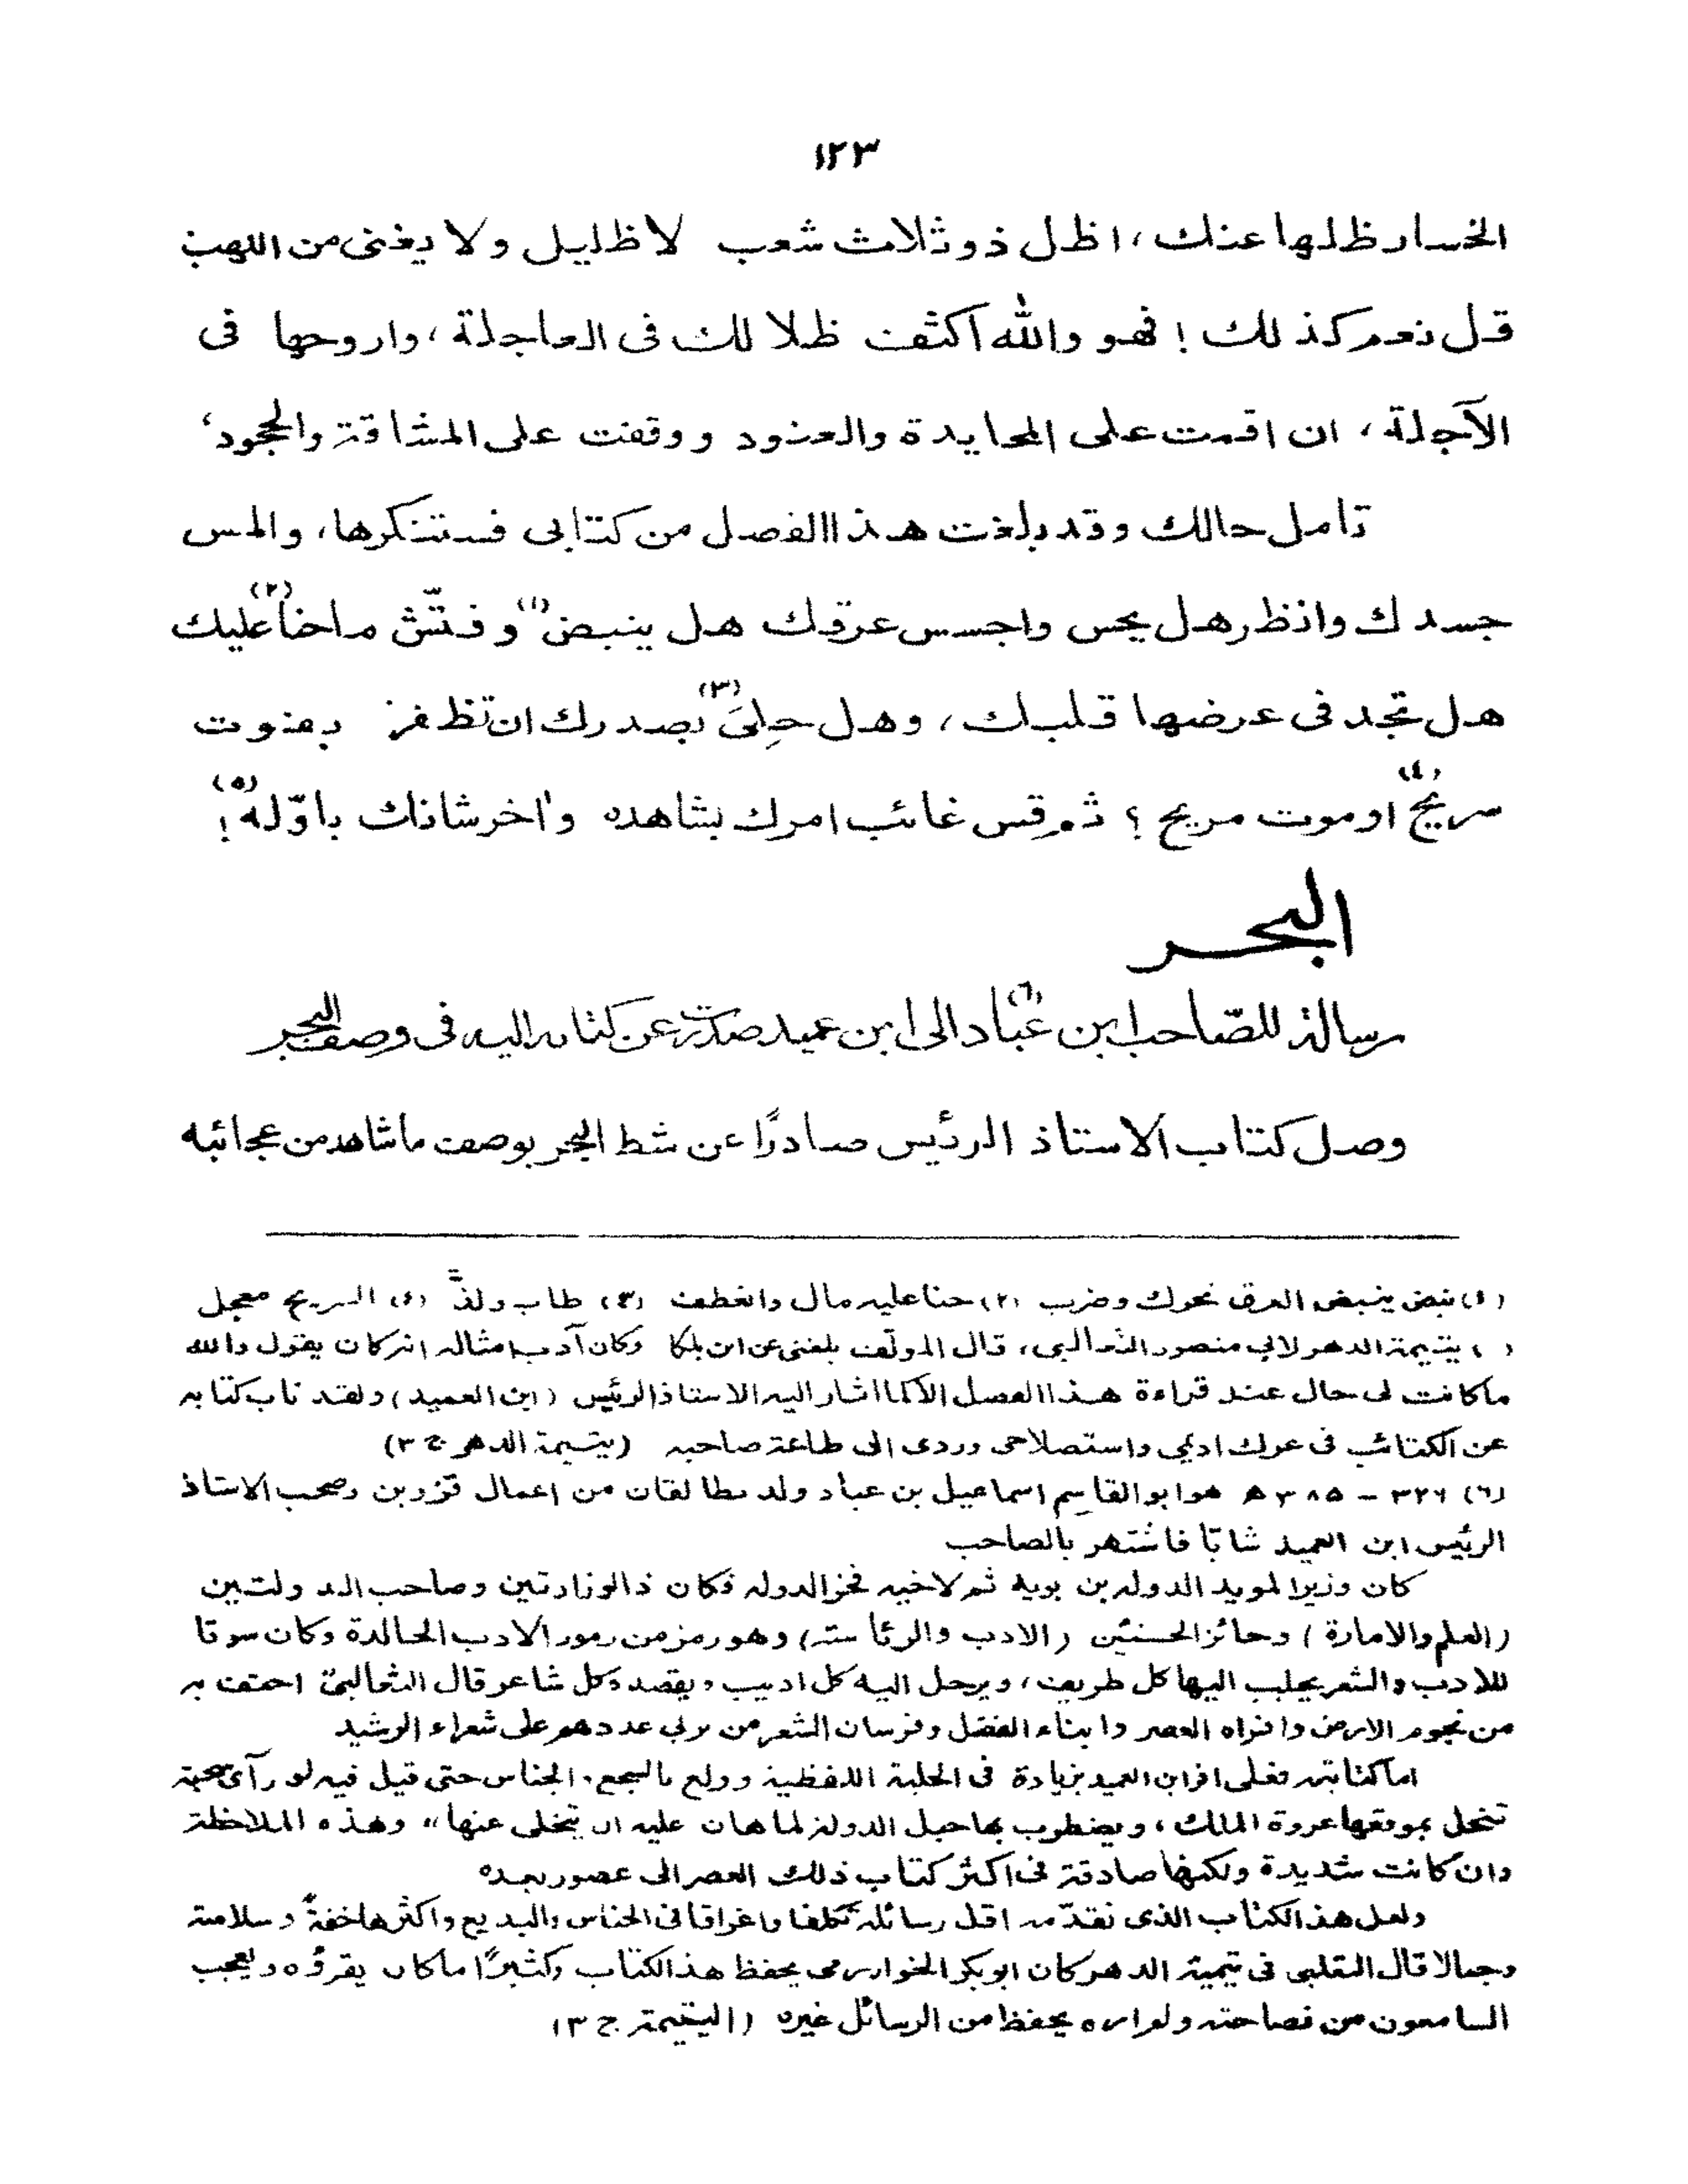 ١٢٣
الخسار ظلها عنك، اظل ذو ثلاث شعب لا ظليل ولا يغنى من اللهب
قل نعم كذلك! فهو والله اكثف ظلا لك فى العاجلة، واروحها فى
الآجلة، ان اقمت على المحايدة والعنود ووقفت على المشاقة والجحود،
تامل حالك وقد بلغت هذا الفصل من كتابى فستنكرها، والمس
جسدك وانظر هل يحس واجسس عرقك هل ينبض (١) وفتّش ما حنا (٢) عليك
هل تجد فى عرضها قلبك، وهل حلِىَ (٣) بصدرك ان تظفر بفوت
سريح (٤) او موت مريح؟ ثم قس غائب امرك بشاهده واٰخر شانك باوّله (٥)!
البحر
رسالة للصّاحب ابن عبّاد (٦) الى ابن عميد صدرت عن كتابه اليه فى وصف البحر
وصل كتاب الاستاذ الرئيس صادرًا عن شط البحر بوصف ما شاهد من عجائبه
(١) نبض ينبض العرق تحرك وضرب (٢) حنا عليه مال وانعطف (٣) طاب ولذّ (٤) السريح معجل
( ) يتيمة الدهر لابي منصور الثعالبى، قال المولّف بلغنى عن ابن بلكا وكان آدب امثاله انه كان يقول والله
ما كانت لى حال عند قراءة هذا الفصل الا كما اشار اليه الاستاذ الرئيس (ابن العميد) ولقد ناب كتابه
عن الكتائب فى عرك اديمي واستصلاحى وردى الى طاعة صاحبه (يتيمة الدهر ج ٣)
(٦) ٣٢٦ - ٣٨٥ ھ هو ابو القاسم اسماعيل بن عباد ولد بطالقان من اعمال قزوين وصحب الاستاذ
الرئيس ابن العميد شابّا فاشتهر بالصاحب
كان وزيرا لمويد الدوله بن بويه ثم لاخيه فخر الدوله فكان ذا الوزارتين وصاحب الدولتين
(العلم والامارة) وحائز الحسنيين (الادب والرئاسته) وهو رمز من رموز الادب الخالدة وكان سوقا
للادب والشعر يجلب اليها كل طريف، ويرحل اليه كل اديب ويقصده كل شاعر قال الثعالبىّ احتف به
من نجوم الارض وافراه العصر وابناء الفضل وفرسان الشعر من يربي عددهم على شعراء الرشيد
اما كتابته فعلى اقران العميد بزيادة فى الحلية اللفظية وولع بالسجع، الجناس حتى قيل فيه لو رآى سجعة
تنحل بموقعها عروة الملك، ويضطرب بها حبل الدولة لما هان عليه ان يتخلى عنها" وهذه الملاحظة
وان كانت شديدة ولكنها صادقة فى اكثر كتاب ذلك العصر الى عصور بعده
ولعل هذ الكتاب الذى نقدّمه اقل رسائله تكلفا واغراقا فى الجناس والبديع واكثرها خفة وسلامة
وجمالا قال الثعلبى فى تيمية الدهر كان ابوبكر الخوارزمى يحفظ هذ الكتاب وكثيرًا ما كان يقرؤه ويعجب
السامعون من فصاحته ولم اره يحفظ من الرسائل غيره (اليتيمة ج ٣)